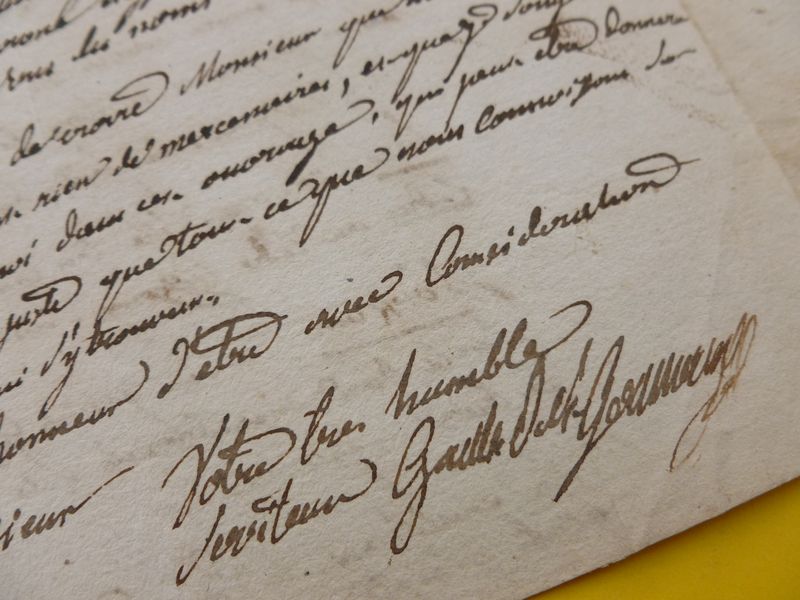 sous les noms
de croire Monsieur que
rien de mercenaires, et que
dans cet ouvrage, qui peut etre donnera
juste que tout ce que nous connoissons
s'y trouver.
honneur d'etre avec Consideration
sieur Votre tres humble
serviteur Gault De St Germain